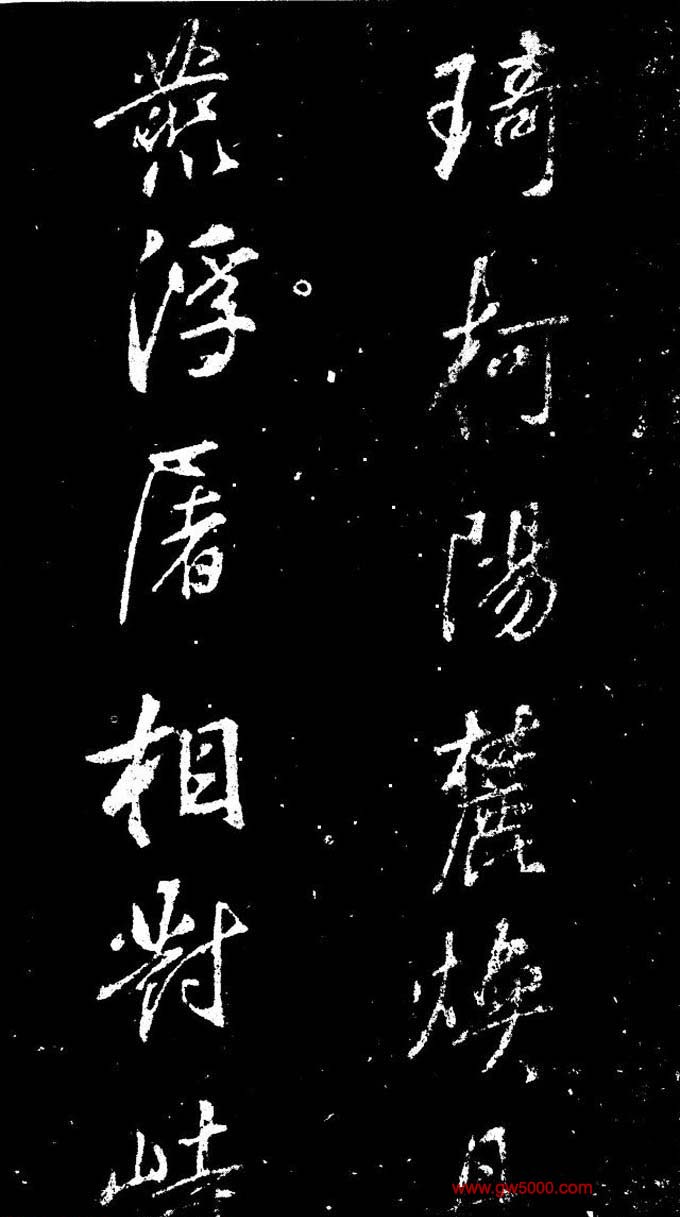 琦柯陽麓煥
浮屠相對峙
www.gw5000.com